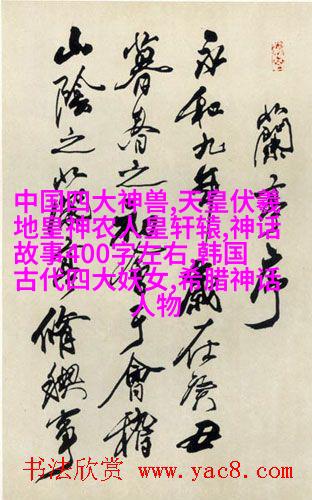 蘭亭序
永和九年歲在癸丑
暮春之初會于會稽
山陰之蘭亭脩禊事
中国四大神兽,天皇伏羲
地皇神农人皇轩辕,神话
故事400字左右,韩国
古代四大妖女,希腊神话
人物
书法欣赏 www.yac8.com